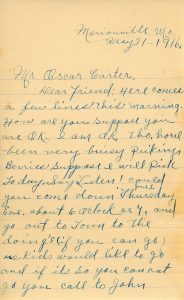 Marionville Mo.
May 31-1916,
Mr Oscar Carter,
Dear Friend; Here comes
a few lines this morning.
How are you suppose you
are OK. I am OK tho, have
been very busy picking
Berries suppose I will Pick
Today. Say Listen! could
you come down Thursday
Eve. about 6 oclock or 7, and
go out to Town to the
doings (if you can go)
us Kids would like to go
and if its so you cannot
go you call to John